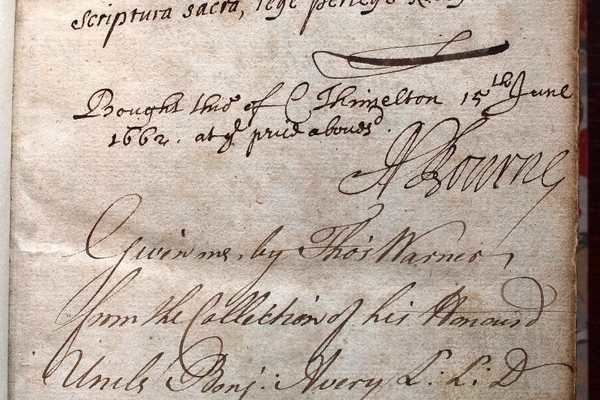 Scriptura sacra, lege perlege
Bought this of C Thimelton 15th June
1662. at ye price aboves^d
A Bourne
Given me, by Thos Warner,
from the Collection of his Honourd
Uncle Benj: Avery L: L: D